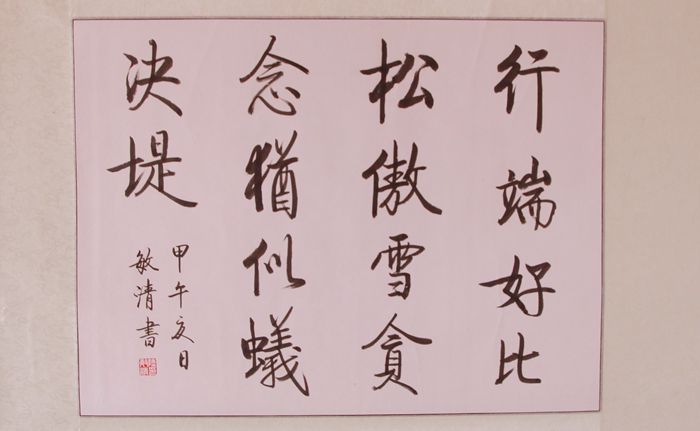 行端好比
松傲雪貪
念猶似蟻
决堤
甲午亥日
敏清書